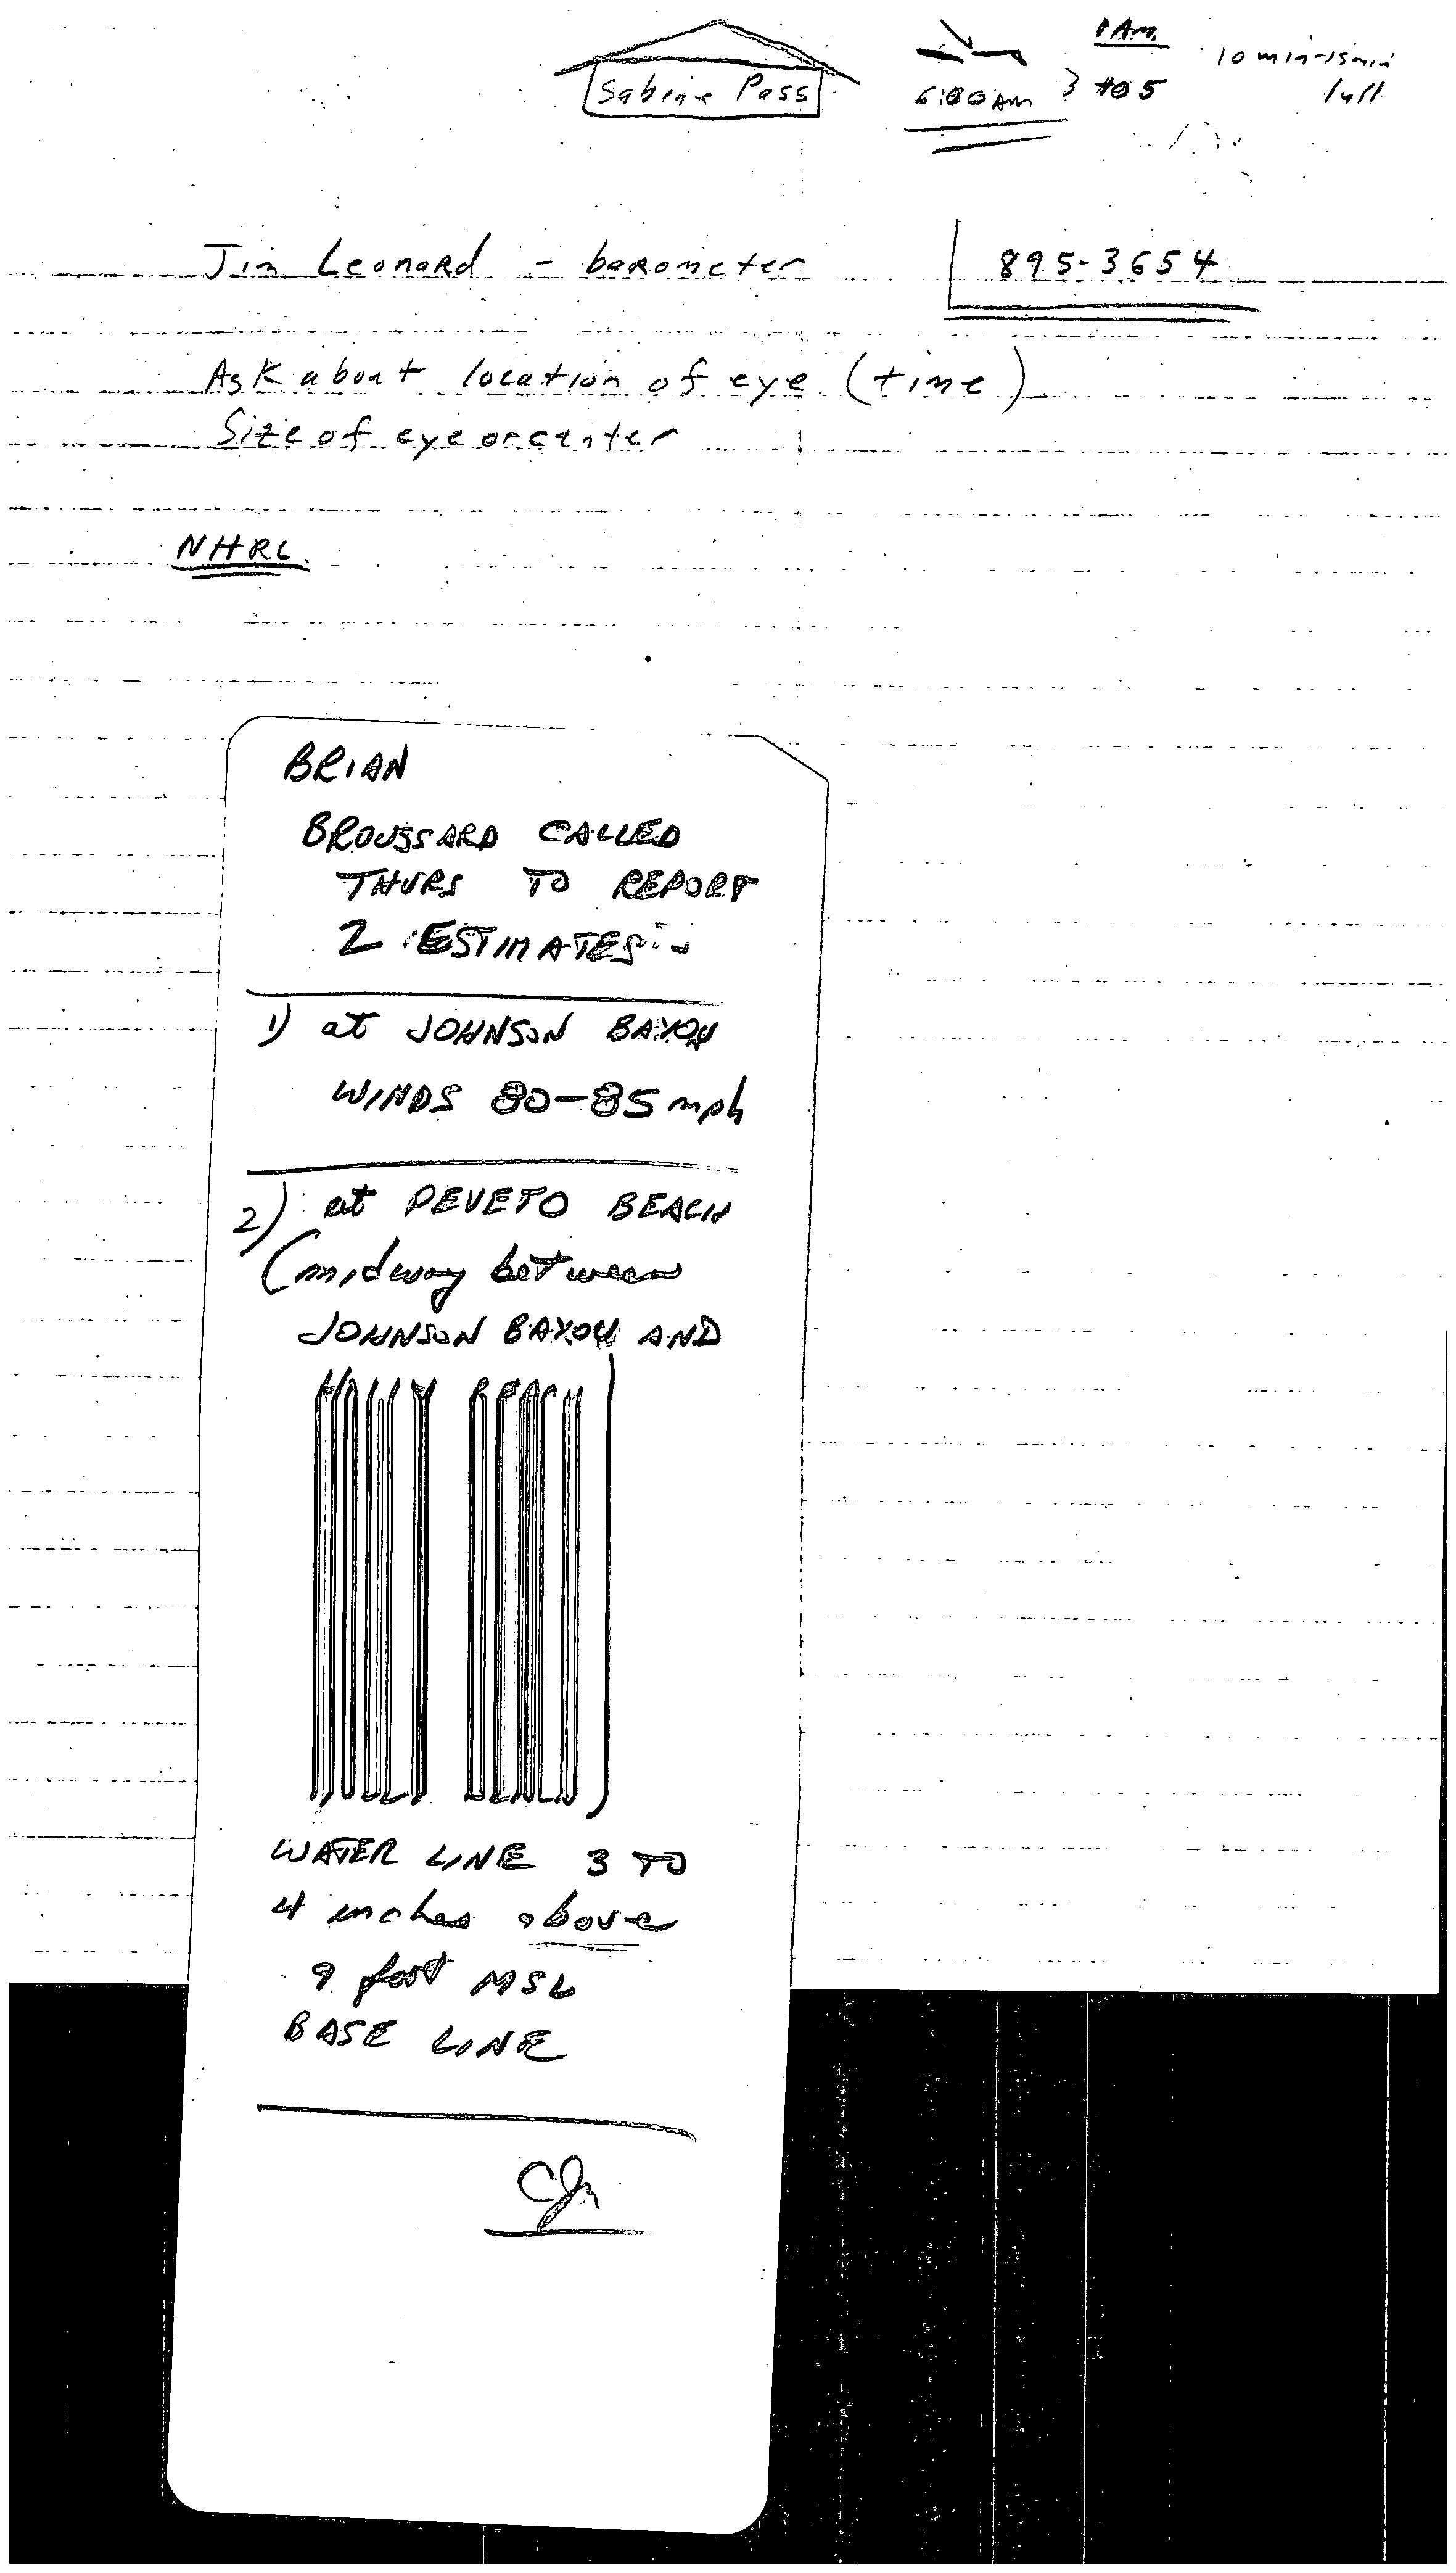 Sabine Pass
6:00 AM 3 to 5
AM.
10 min-15min
lull
Jim Leonard - barometer
895-3654
Ask about location of eye (time)
Size of eye or center
NHRL.
BRIAN
BROUSSARD CALLED
THURS TO REPORT
2 ESTIMATES:-
1) at JOHNSON BAYOU
WINDS 80-85 mph
2) at PEVETO BEACH
(midway between
JOHNSON BAYOU AND
HOLLY BEACH)
WATER LINE 3 TO
4 inches above
9 feet MSL
BASE LINE